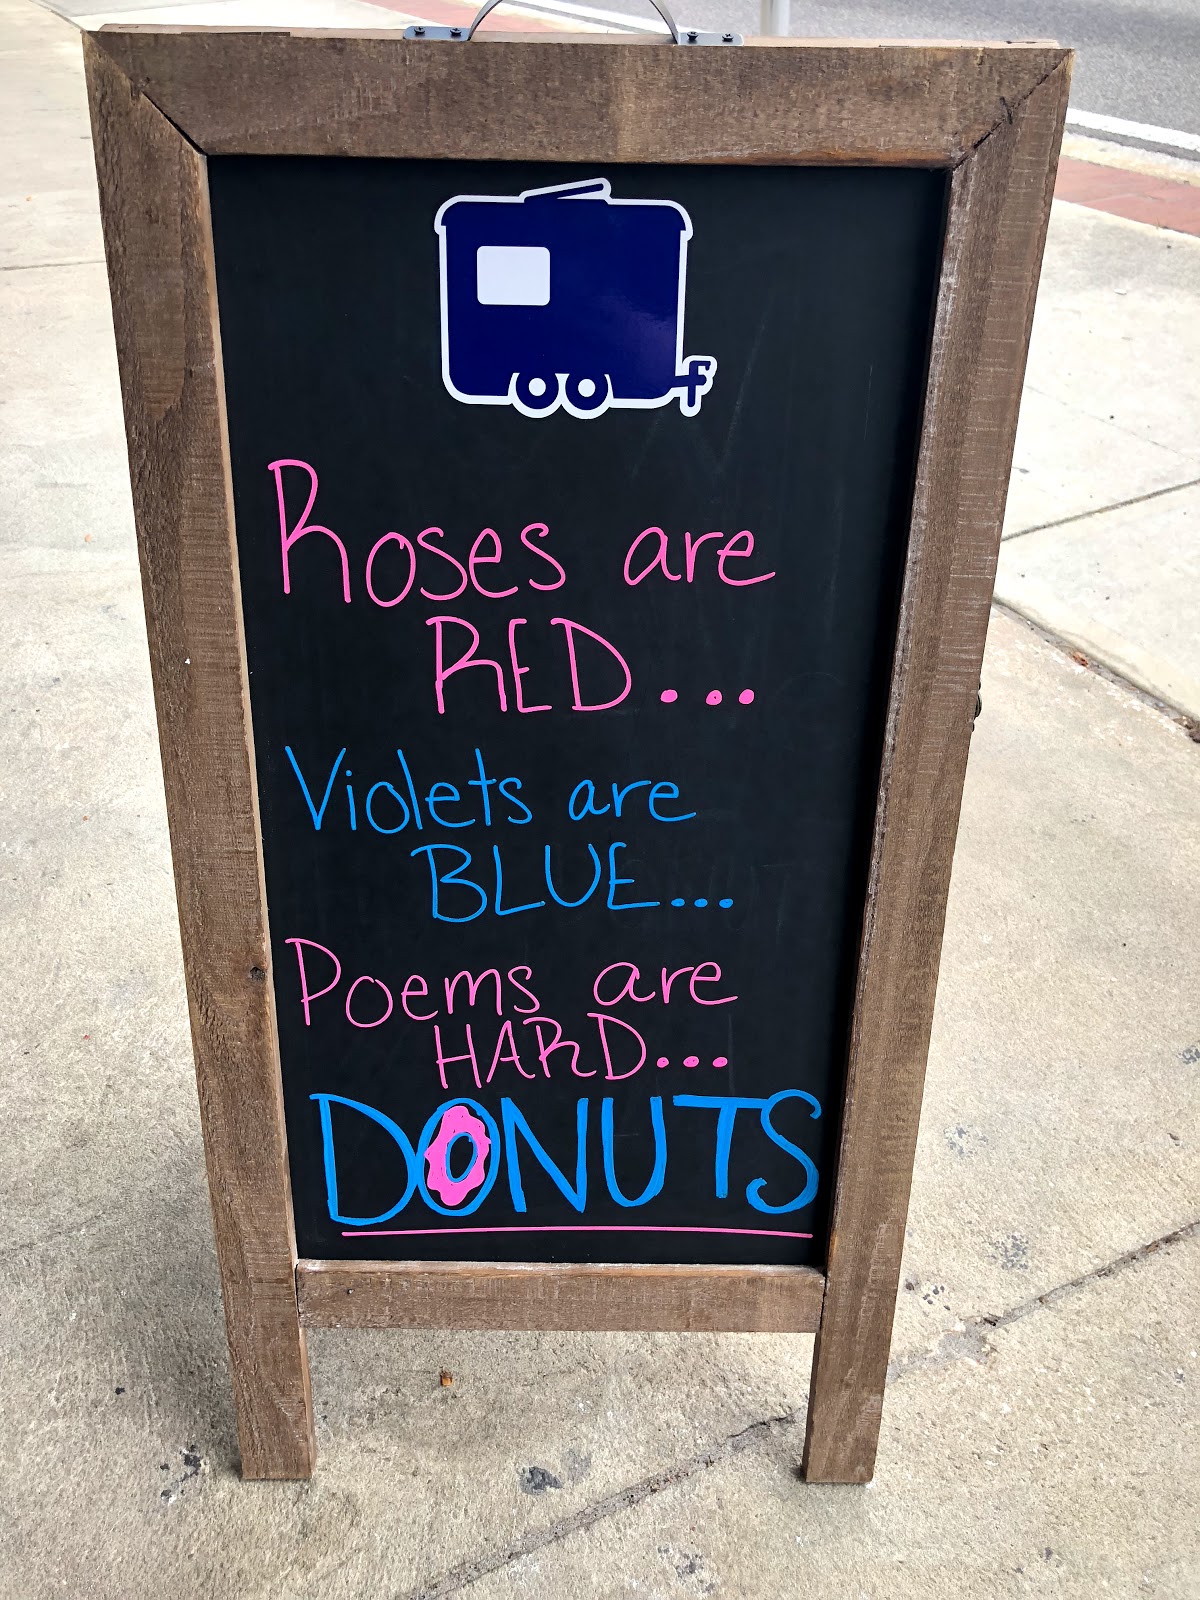 Roses are
RED...
Violets are
BLUE...
Poems are
HARD...
DONUTS